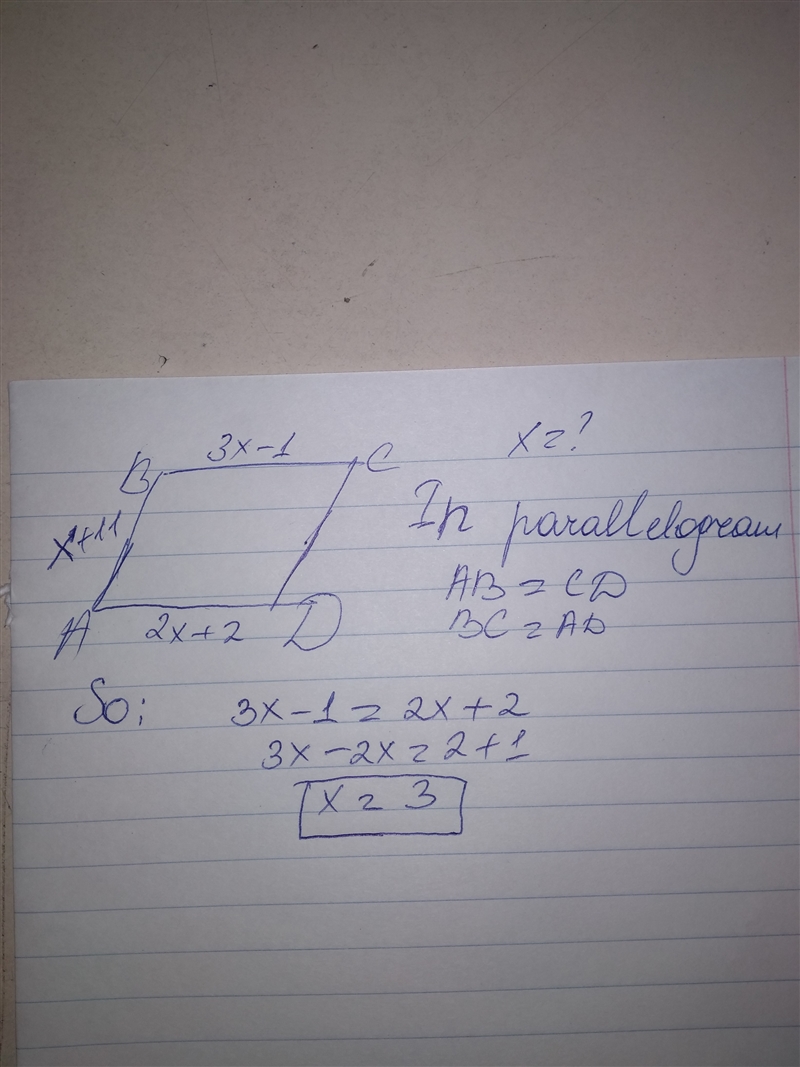 3x-1
B C
x+11
A D
2x+2
x=?
In parallelogram
AB = CD
BC = AD
So: 3x-1 = 2x+2
3x-2x = 2+1
x = 3